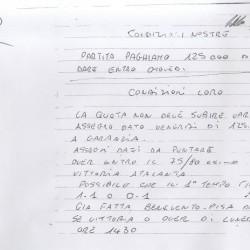 CONDIZIONI NOSTRE
PARTITA PAGHIAMO 125 000 D
DARE ENTRO
CONDIZIONI LORO
LA QUOTA NON DEVE SUBIRE VAR
ASSEGNO DATO VENERDI DI 125.
A GARANZIA.
ASSEGNI DATI DA PUNTARE
OVER ENTRO IL 75/80
VITTORIA ATALANTA
POSSIBILE CHE IL 1° TEMPO
1-1 O 0-1
GIA FATTA BENEVENTO-PISA
SE VITTORIA O OVER DI
ORE 1430